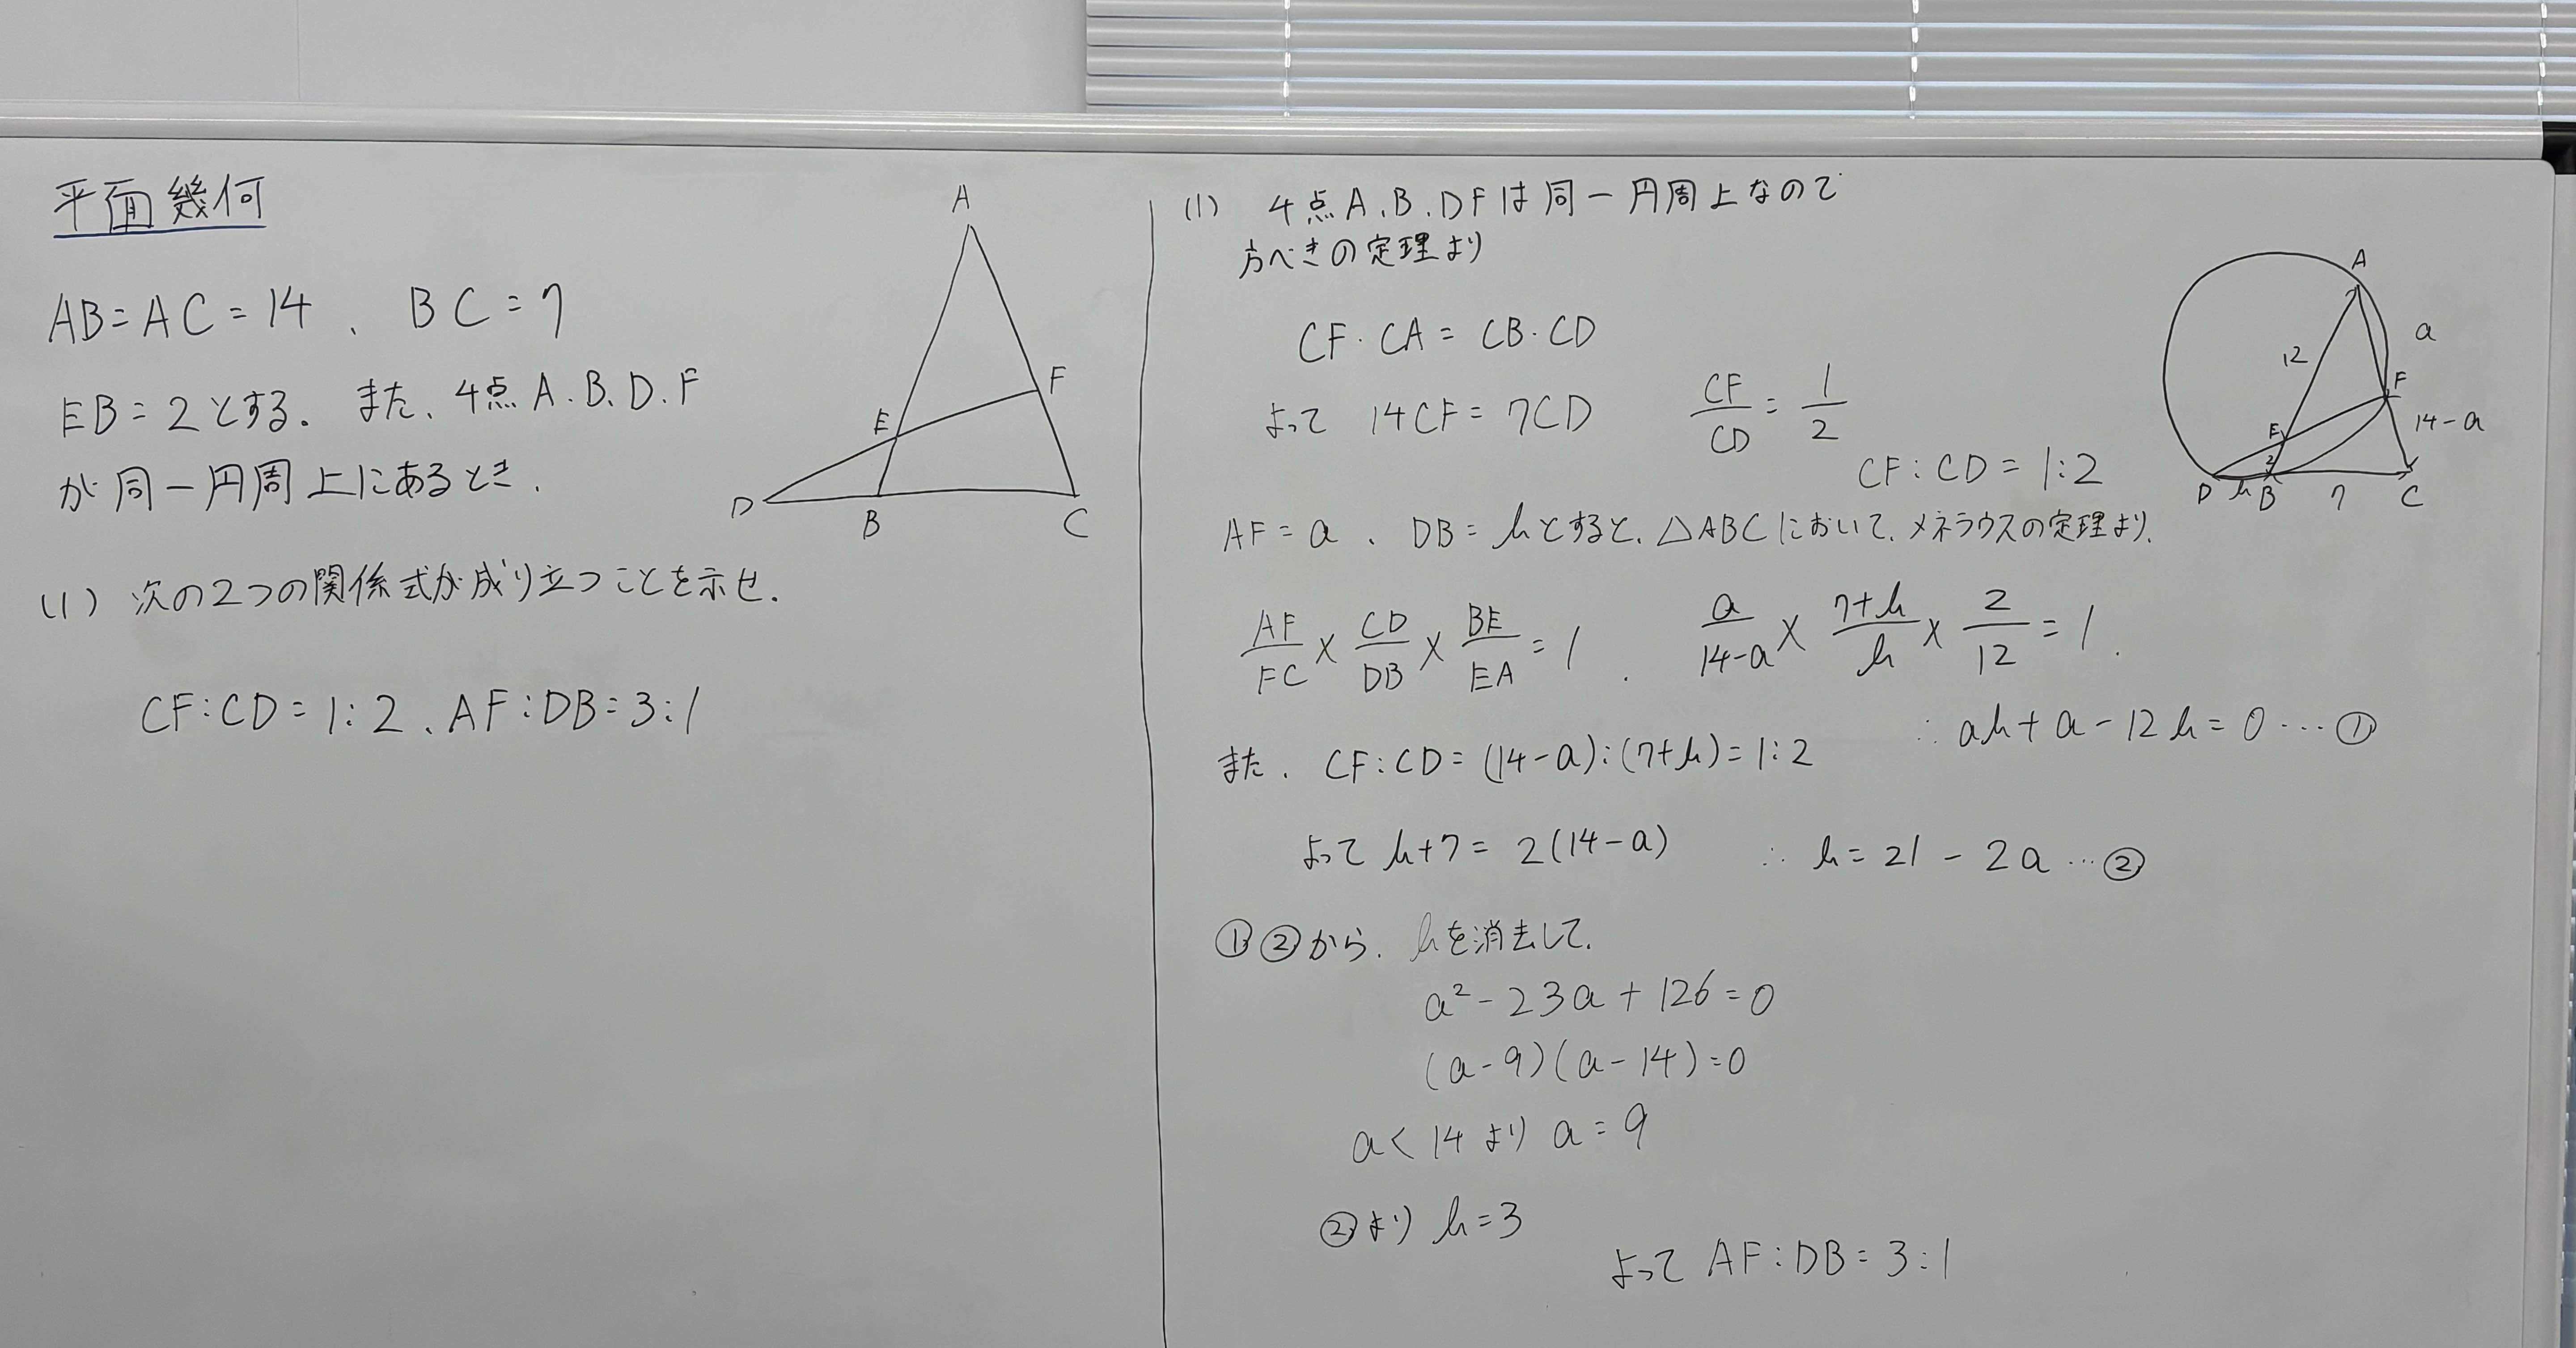 平面幾何
AB=AC=14、BC=7
EB=2とする。また、4点A.B.D.F
が同一円周上にあるとき、
A
E
F
D
B
C
(1) 次の2つの関係式が成り立つことを示せ.
CF:CD=1:2、AF:DB=3:1
(1) 4点A.B.DFは同一円周上なので
方べきの定理より
CF・CA=CB・CD
よって 14CF=7CD CF/CD=1/2
CF:CD=1:2
A
a
12
F
14-a
E
2
D
h
B
7
C
AF=a、DB=hとすると、△ABCにおいて、メネラウスの定理より、
AF/FC×CD/DB×BE/EA=1. a/14-a×7+h/h×2/12=1.
∴ah+a-12h=0…①
また、CF:CD=(14-a):(7+h)=1:2
よって h+7=2(14-a) ∴h=21-2a…②
①②から、hを消去して、
a²-23a+126=0
(a-9)(a-14)=0
a<14より a=9
②より h=3
よって AF:DB=3:1